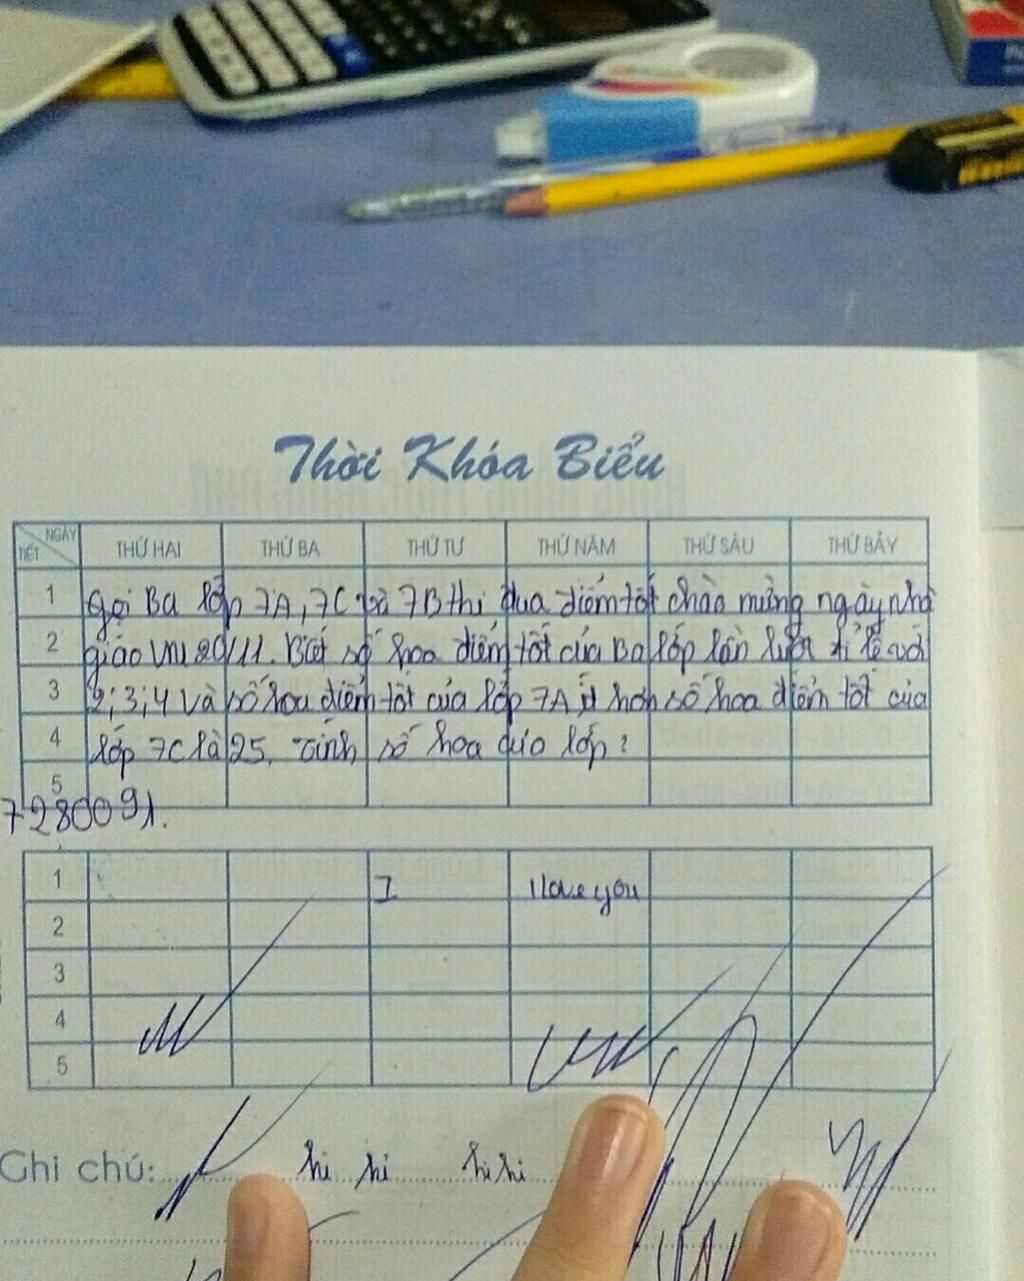 Thời Khóa Biểu
NGÀY
TIẾT THỨ HAI THỨ BA THỨ TƯ THỨ NĂM THỨ SÁU THỨ BẢY
1 Gọi Ba lớp 7A, 7C và 7B thi đua điểm tốt chào mừng ngày nhà
2 giáo VN 20/11. Biết số hoa điểm tốt của Ba lớp lần lượt tỉ lệ với
3 2; 3; 4 và số hoa điểm tốt của lớp 7A ít hơn số hoa điểm tốt của
4 lớp 7C là 25. Tính số hoa của lớp?
5
7280091.
1 I I love you
2
3
4
5
Ghi chú: hi hi hi hi